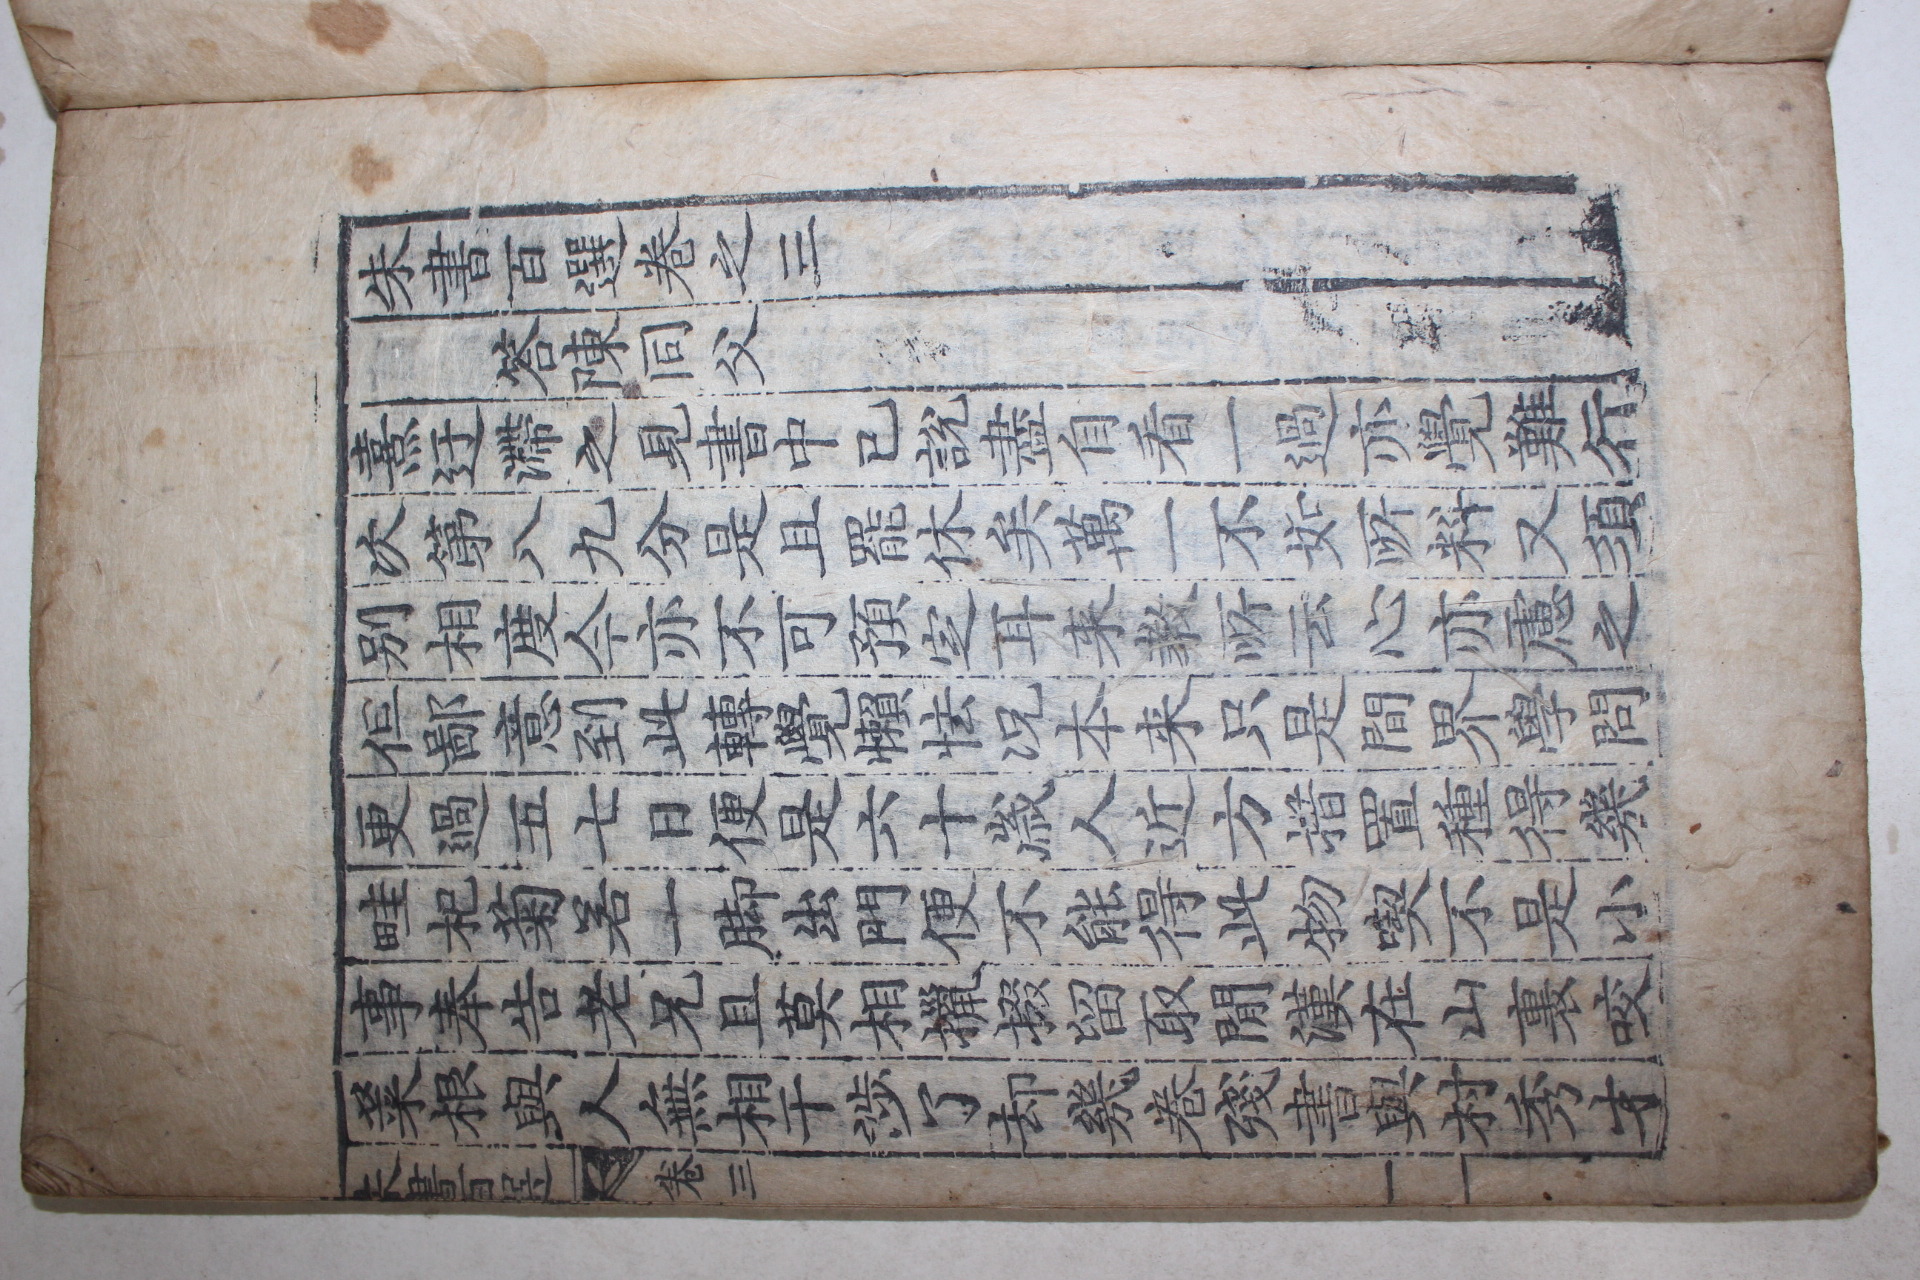 朱書百選卷之三
答陳同父
熹迂滯之見書中已說盡自看一過亦覺難行
次第八九分是且罷休矣萬一不如所料又須
別相度今亦不可預定耳來敎所云心亦慮之
但鄙意到此轉覺懶怯况本來只是間界學問
更過五七日便是六十歲人近方措置種得幾
畦杞菊若一脚出門便不能得此物喫不是小
事奉告老兄且莫相攛掇留取閒漢在山裏咬
菜根與人無相干涉了却幾卷殘書與村秀才
朱書百選 卷三 一